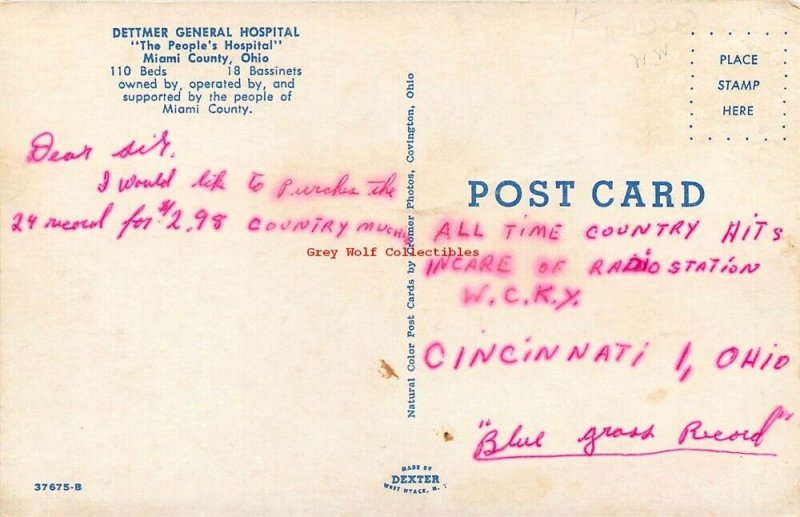 DETTMER GENERAL HOSPITAL
"The People's Hospital"
Miami County, Ohio
110 Beds 18 Bassinets
owned by, operated by, and
supported by the people of
Miami County.
PLACE
STAMP
HERE
Dear sir.
I would like to Purches the
24 record for $2.98 COUNTRY MUCHIC
Grey Wolf Collectibles
Natural Color Post Cards by Cromer Photos, Covington, Ohio
POST CARD
ALL TIME COUNTRY HITS
INCARE OF RADIO STATION
W.C.K.Y.
CINCINNATI 1, OHIO
"Blue grass Record"
37675-B
MADE BY
DEXTER
WEST NYACK, N. Y.